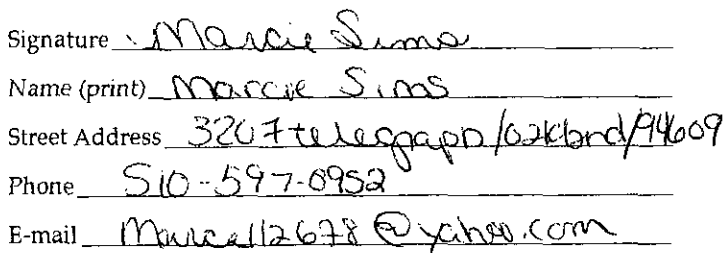 Signature Marcie Sims
Name (print) Marcie Sims
Street Address 3207 telegraph/oakland/94609
Phone 510-597-0952
E-mail Marcel12678@yahoo.com